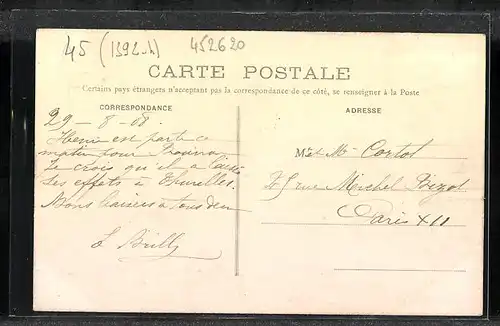 45 (1392-h) 452620
CARTE POSTALE
Certains pays étrangers n'acceptant pas la correspondance de ce côté, se renseigner à la Poste
CORRESPONDANCE
ADRESSE
29-8-08.
est parti ce
matin pour
Je crois qu'il a laissé
ses effets à
Bons baisers à tous deux
M et Mr Cortot
rue Michel Bizot
Paris XII